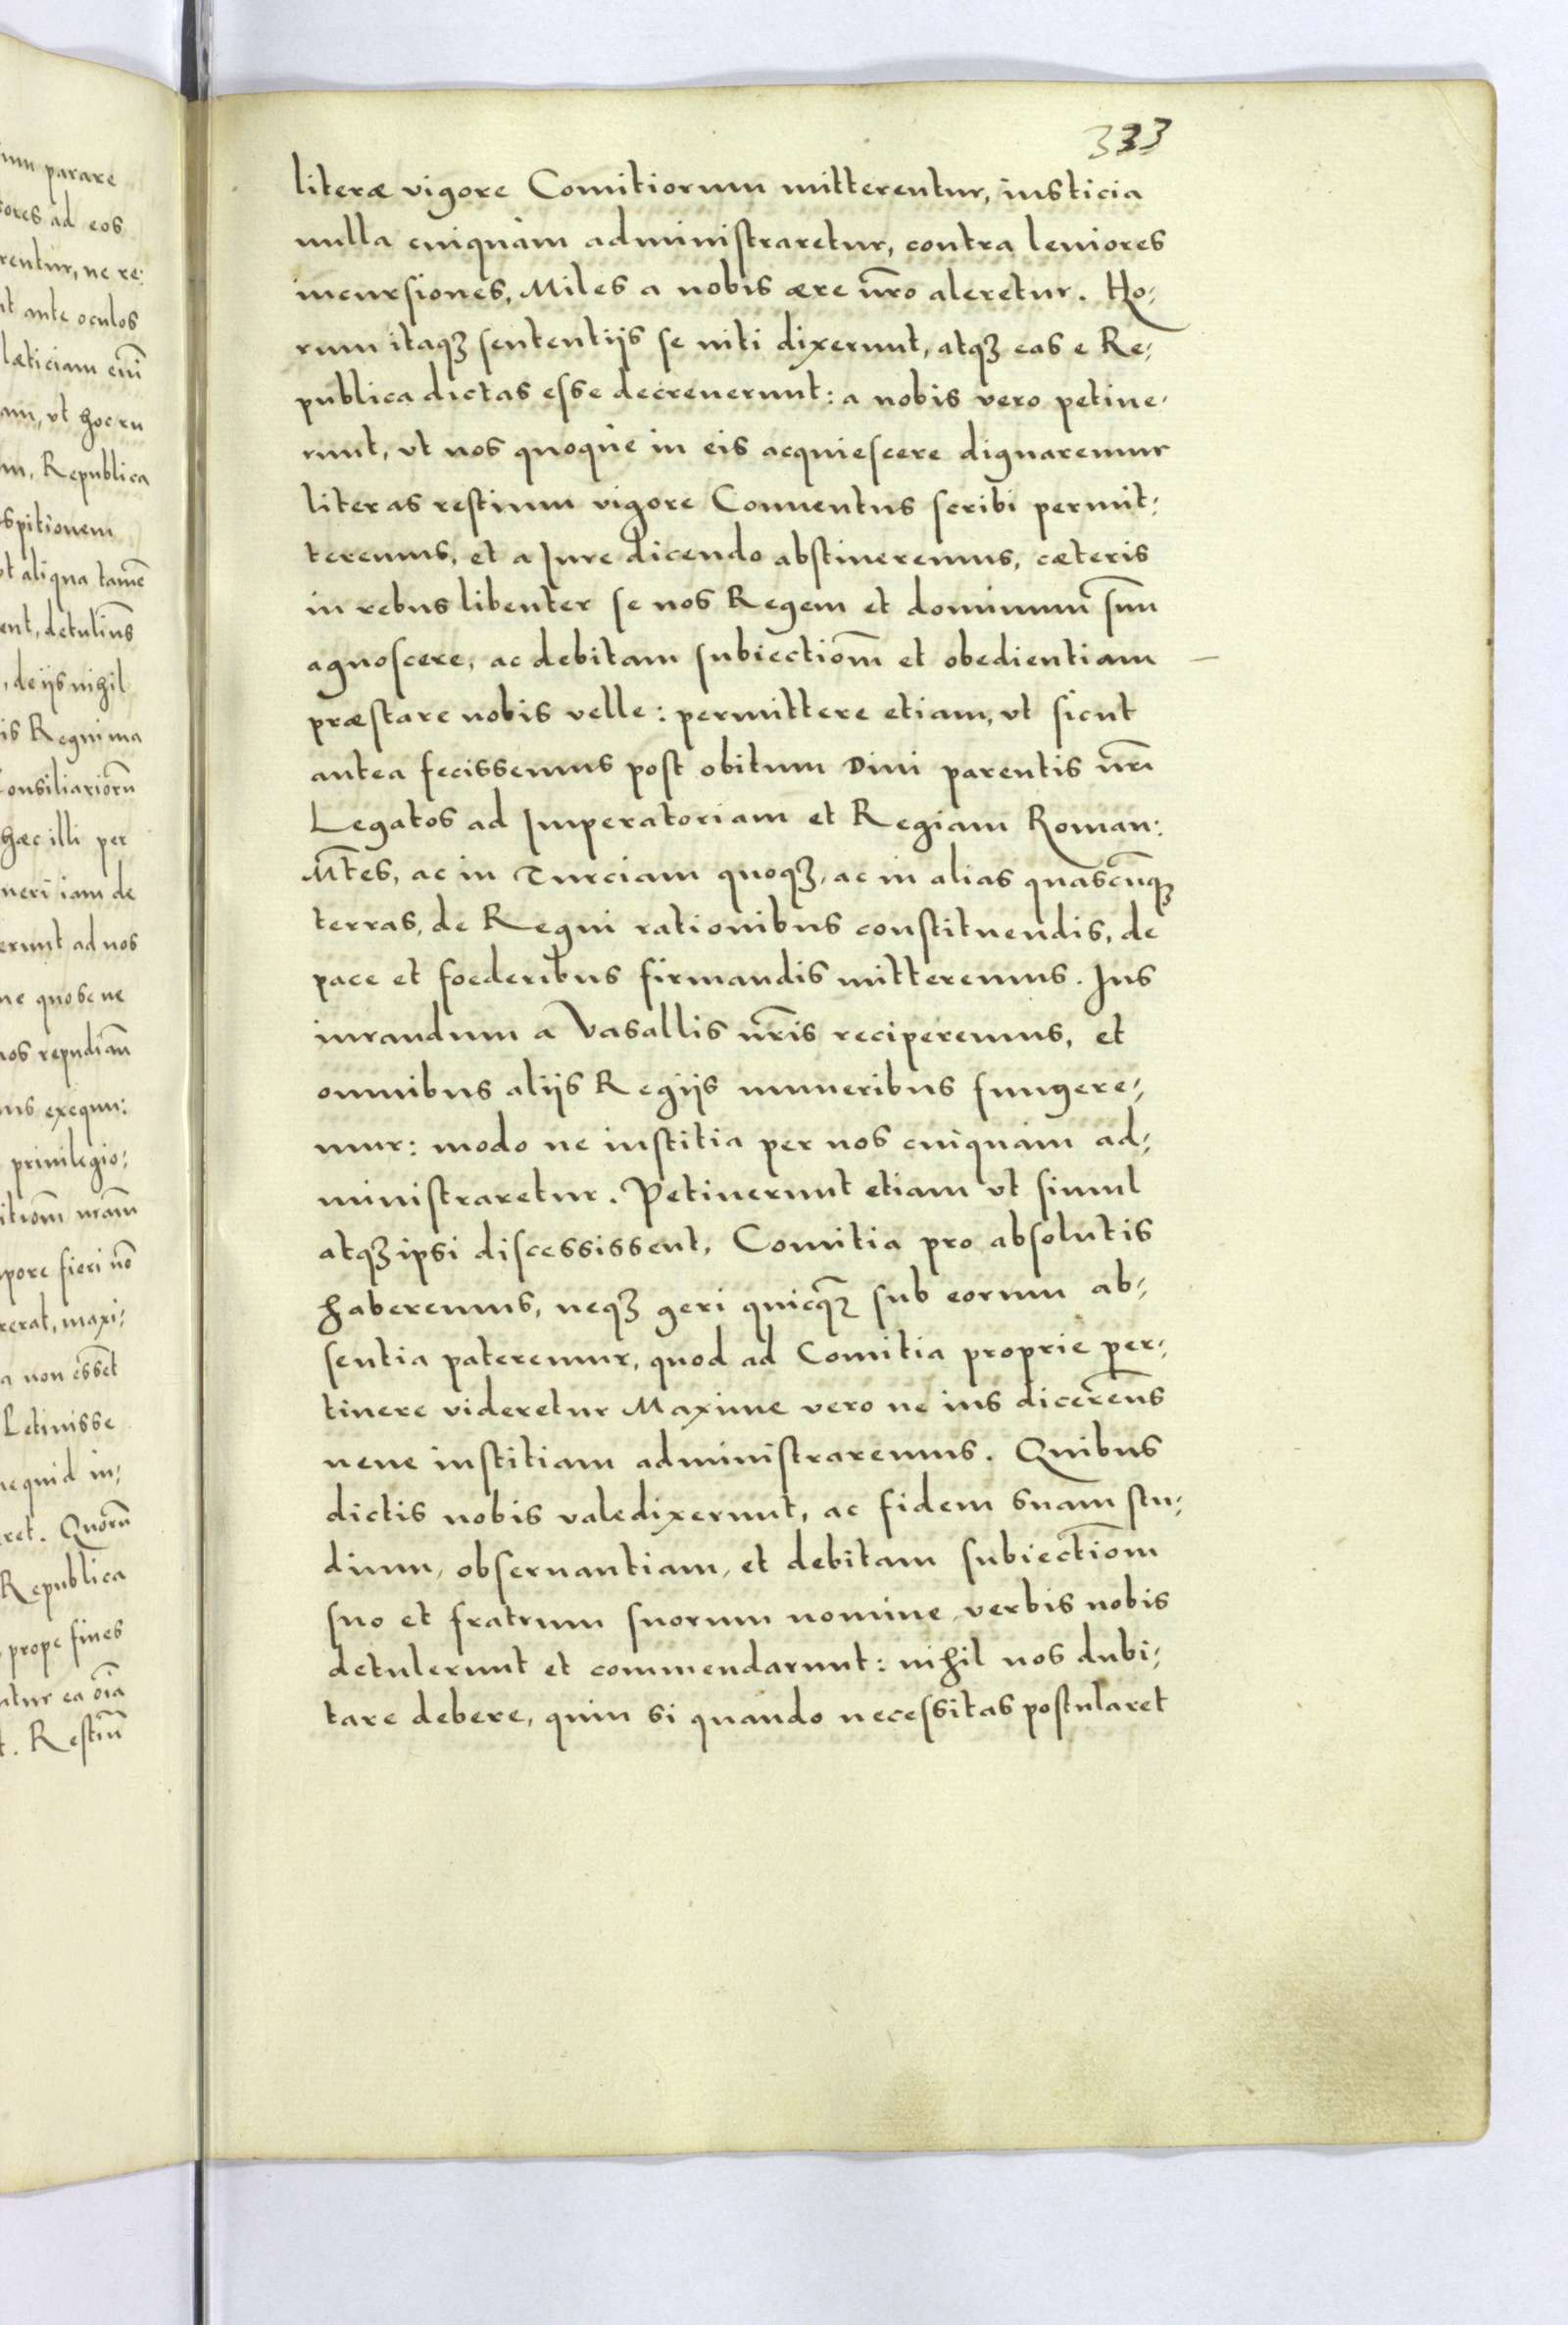 333
literæ vigore Comitiorum mitterentur, iusticia
nulla cuiquàm administraretur, contra leuiores
incursiones, Miles a nobis ære nr̃o aleretur. Ho-
rum itaqꝫ sententijs se niti dixerunt, atqꝫ eas e Re-
publica dictas esse decreuerunt: a nobis vero petiue-
runt, vt nos quoque in eis acquiescere dignaremur
literas restium vigore Conuentus scribi permit-
teremus, et a Jure dicendo abstineremus, cæteris
in rebus libenter se nos Regem et dominum suũ
agnoscere, ac debitam subiectiom̃ et obedientiam
præstare nobis velle: permittere etiam, vt sicut
antea fecissemus post obitum Diui parentis nr̃i
Legatos ad Imperatoriam et Regiam Roman:
Mt̃es, ac in Turciam quoqꝫ, ac in alias quascũqꝫ
terras, de Regni rationibus constituendis, de
pace et foederibus firmandis mitteremus. Jus
iurandum a Vasallis nr̃is reciperemus, et
omnibus alijs Regijs muneribus fungere-
mur: modo ne iustitia per nos cuiquàm ad-
ministraretur. Petiuerunt etiam vt simul
atqꝫ ipsi discessissent, Comitia pro absolutis
haberemus, neqꝫ geri quicq̃ꝫ sub eorum ab-
sentia pateremur, quod ad Comitia proprie per-
tinere videretur Maxime vero ne ius dicerem̃s
neue iustitiam administraremus. Quibus
dictis nobis valedixerunt, ac fidem suam stu-
dium, obseruantiam, et debitam subiectiom̃
suo et fratrum suorum nomine verbis nobis
detulerunt et commendarunt: nihil nos dubi-
tare debere, quin si quando necessitas postularet
parare
ad eos
ne re:
ante oculos
læticiam
vt hoc
Republica
aliqua tamẽ
detulim̃s
de ijs nihil
Regni ma
Consiliariorũ
hæc illi per
iam de
ad nos
quo se ne
nos repudiam̃
exequu:
priuilegio:
nr̃am
fieri nõ
maxi-
non esset
in-
Quorũ
Republica
prope fines
ea oĩa
Restiũ